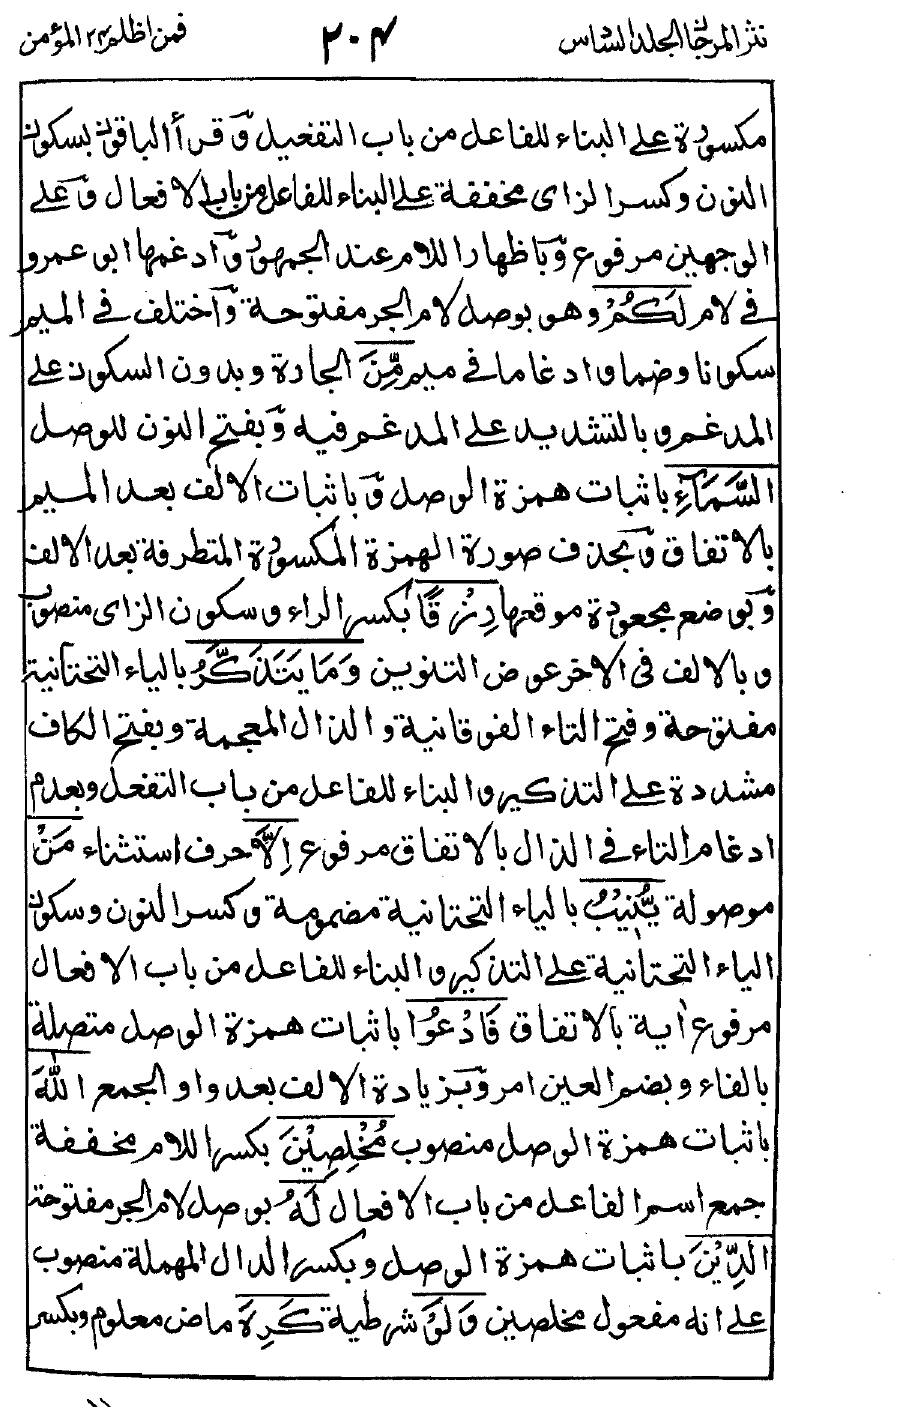 نثر المرجان الجلد السادس ٢٠٤ فمن اظلم ٢٤ المؤمن
مكسورة على البناء للفاعل من باب التفعيل وَقرأ الباقون بسكون
النون وكسر الزاى مخففة على البناء للفاعل من باب الافعال وَعلى
الوجهين مرفوع وَباظهار اللام عند الجمهور وَادغمها ابو عمرو
فى لام لَكُمْ وهو بوصل لام الجر مفتوحة وَاختلف فى الميم
سكونا وضما وادغاما فى ميم مِّنَ الجارة وبدون السكون على
المدغم وبالتشديد على المدغم فيه وَبفتح النون للوصل
السَّمَآءِ باثبات همزة الوصل وَباثبات الالف بعد الميم
بالاتفاق وَبحذف صورة الهمزة المكسورة المتطرفة بعد الالف
وَبوضع مجعودة موقعها رِزْقًا بكسر الراء وسكون الزاى منصوب
وبالالف فى الاخر عوض التنوين وَمَا يَتَذَكَّرُ بالياء التحتانية
مفتوحة وفتح التاء الفوقانية والذال المعجمة وبفتح الكاف
مشددة على التذكير والبناء للفاعل من باب التفعل وبعدم
ادغام التاء فى الذال بالاتفاق مرفوع اِلَّا حرف استثناء مَنْ
موصولة يُّنِيْبُ بالياء التحتانية مضمومة وكسر النون وسكون
الياء التحتانية على التذكير والبناء للفاعل من باب الافعال
مرفوع اٰية بالاتفاق فَادْعُوا باثبات همزة الوصل متصلة
بالفاء وبضم العين امر وَبزيادة الالف بعد واو الجمع اللّٰهَ
باثبات همزة الوصل منصوب مُخْلِصِيْنَ بكسر اللام مخففة
جمع اسم الفاعل من باب الافعال لَهُ بوصل لام الجر مفتوحة
الدِّيْنَ باثبات همزة الوصل وبكسر الدال المهملة منصوب
على انه مفعول مخلصين وَلَوْ شرطية كَرِهَ ماض معلوم وبكسر